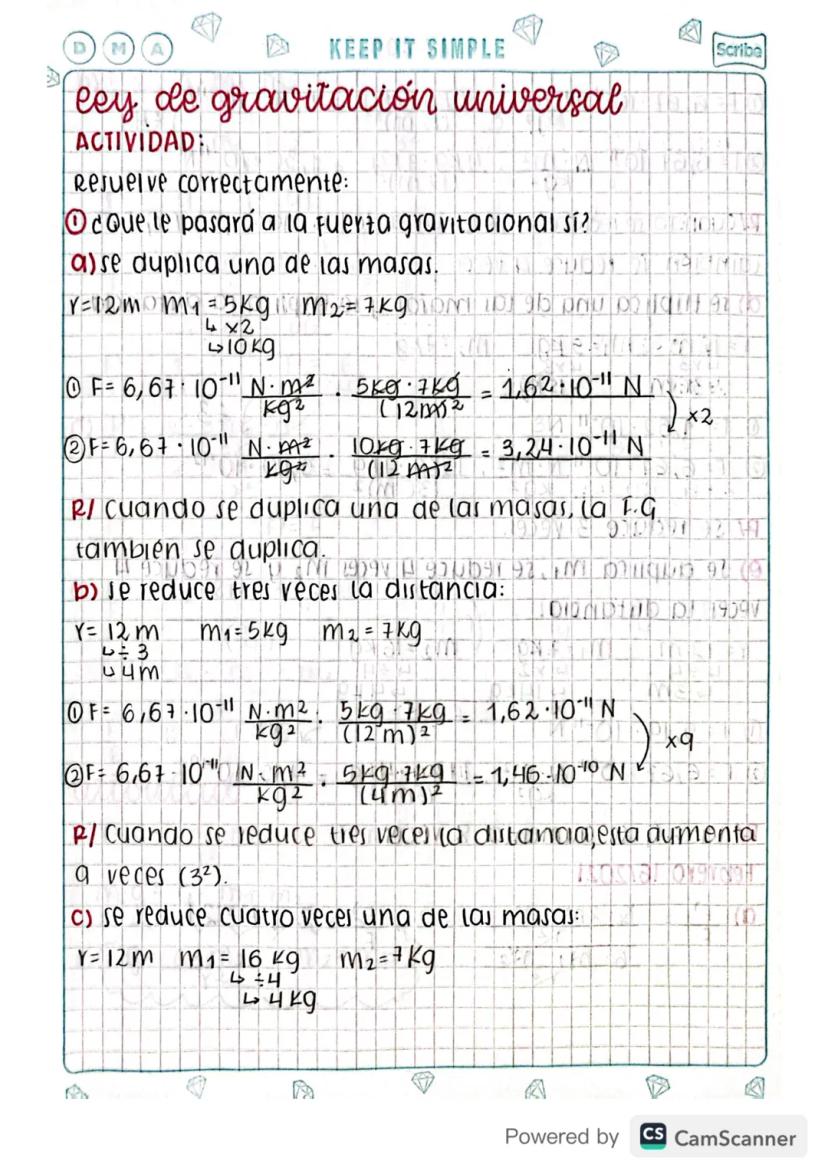 D M A KEEP IT SIMPLE Scribe
Ley de gravitación universal
ACTIVIDAD:
Resuelve correctamente:
① ¿Que le pasará a la fuerza gravitacional sí?
a) se duplica una de las masas.
r=12m m₁ = 5kg m₂= 7kg
↳ x2
↳10kg
① F= 6,67 · 10⁻¹¹ N·m²/kg² · 5kg · 7kg/(12m)² = 1,62·10⁻¹¹ N
x2
② F= 6,67 · 10⁻¹¹ N·m²/kg² · 10kg · 7kg/(12m)² = 3,24·10⁻¹¹ N
R/ Cuando se duplica una de las masas, la F.G
también se duplica.
b) se reduce tres veces la distancia:
r= 12m m₁=5kg m₂ = 7kg
↳÷ 3
↳ 4m
① F= 6,67 ·10⁻¹¹ N·m²/kg² · 5kg · 7kg/(12m)² = 1,62·10⁻¹¹ N
x9
② F= 6,67 · 10⁻¹¹ N·m²/kg² · 5kg · 7kg/(4m)² = 1,46·10⁻¹⁰ N
R/ Cuando se reduce tres veces la distancia, esta aumenta
9 veces (3²).
c) se reduce cuatro veces una de las masas:
r= 12m m₁= 16 kg m₂= 7kg
↳ ÷4
↳ 4 kg
Powered by CS CamScanner